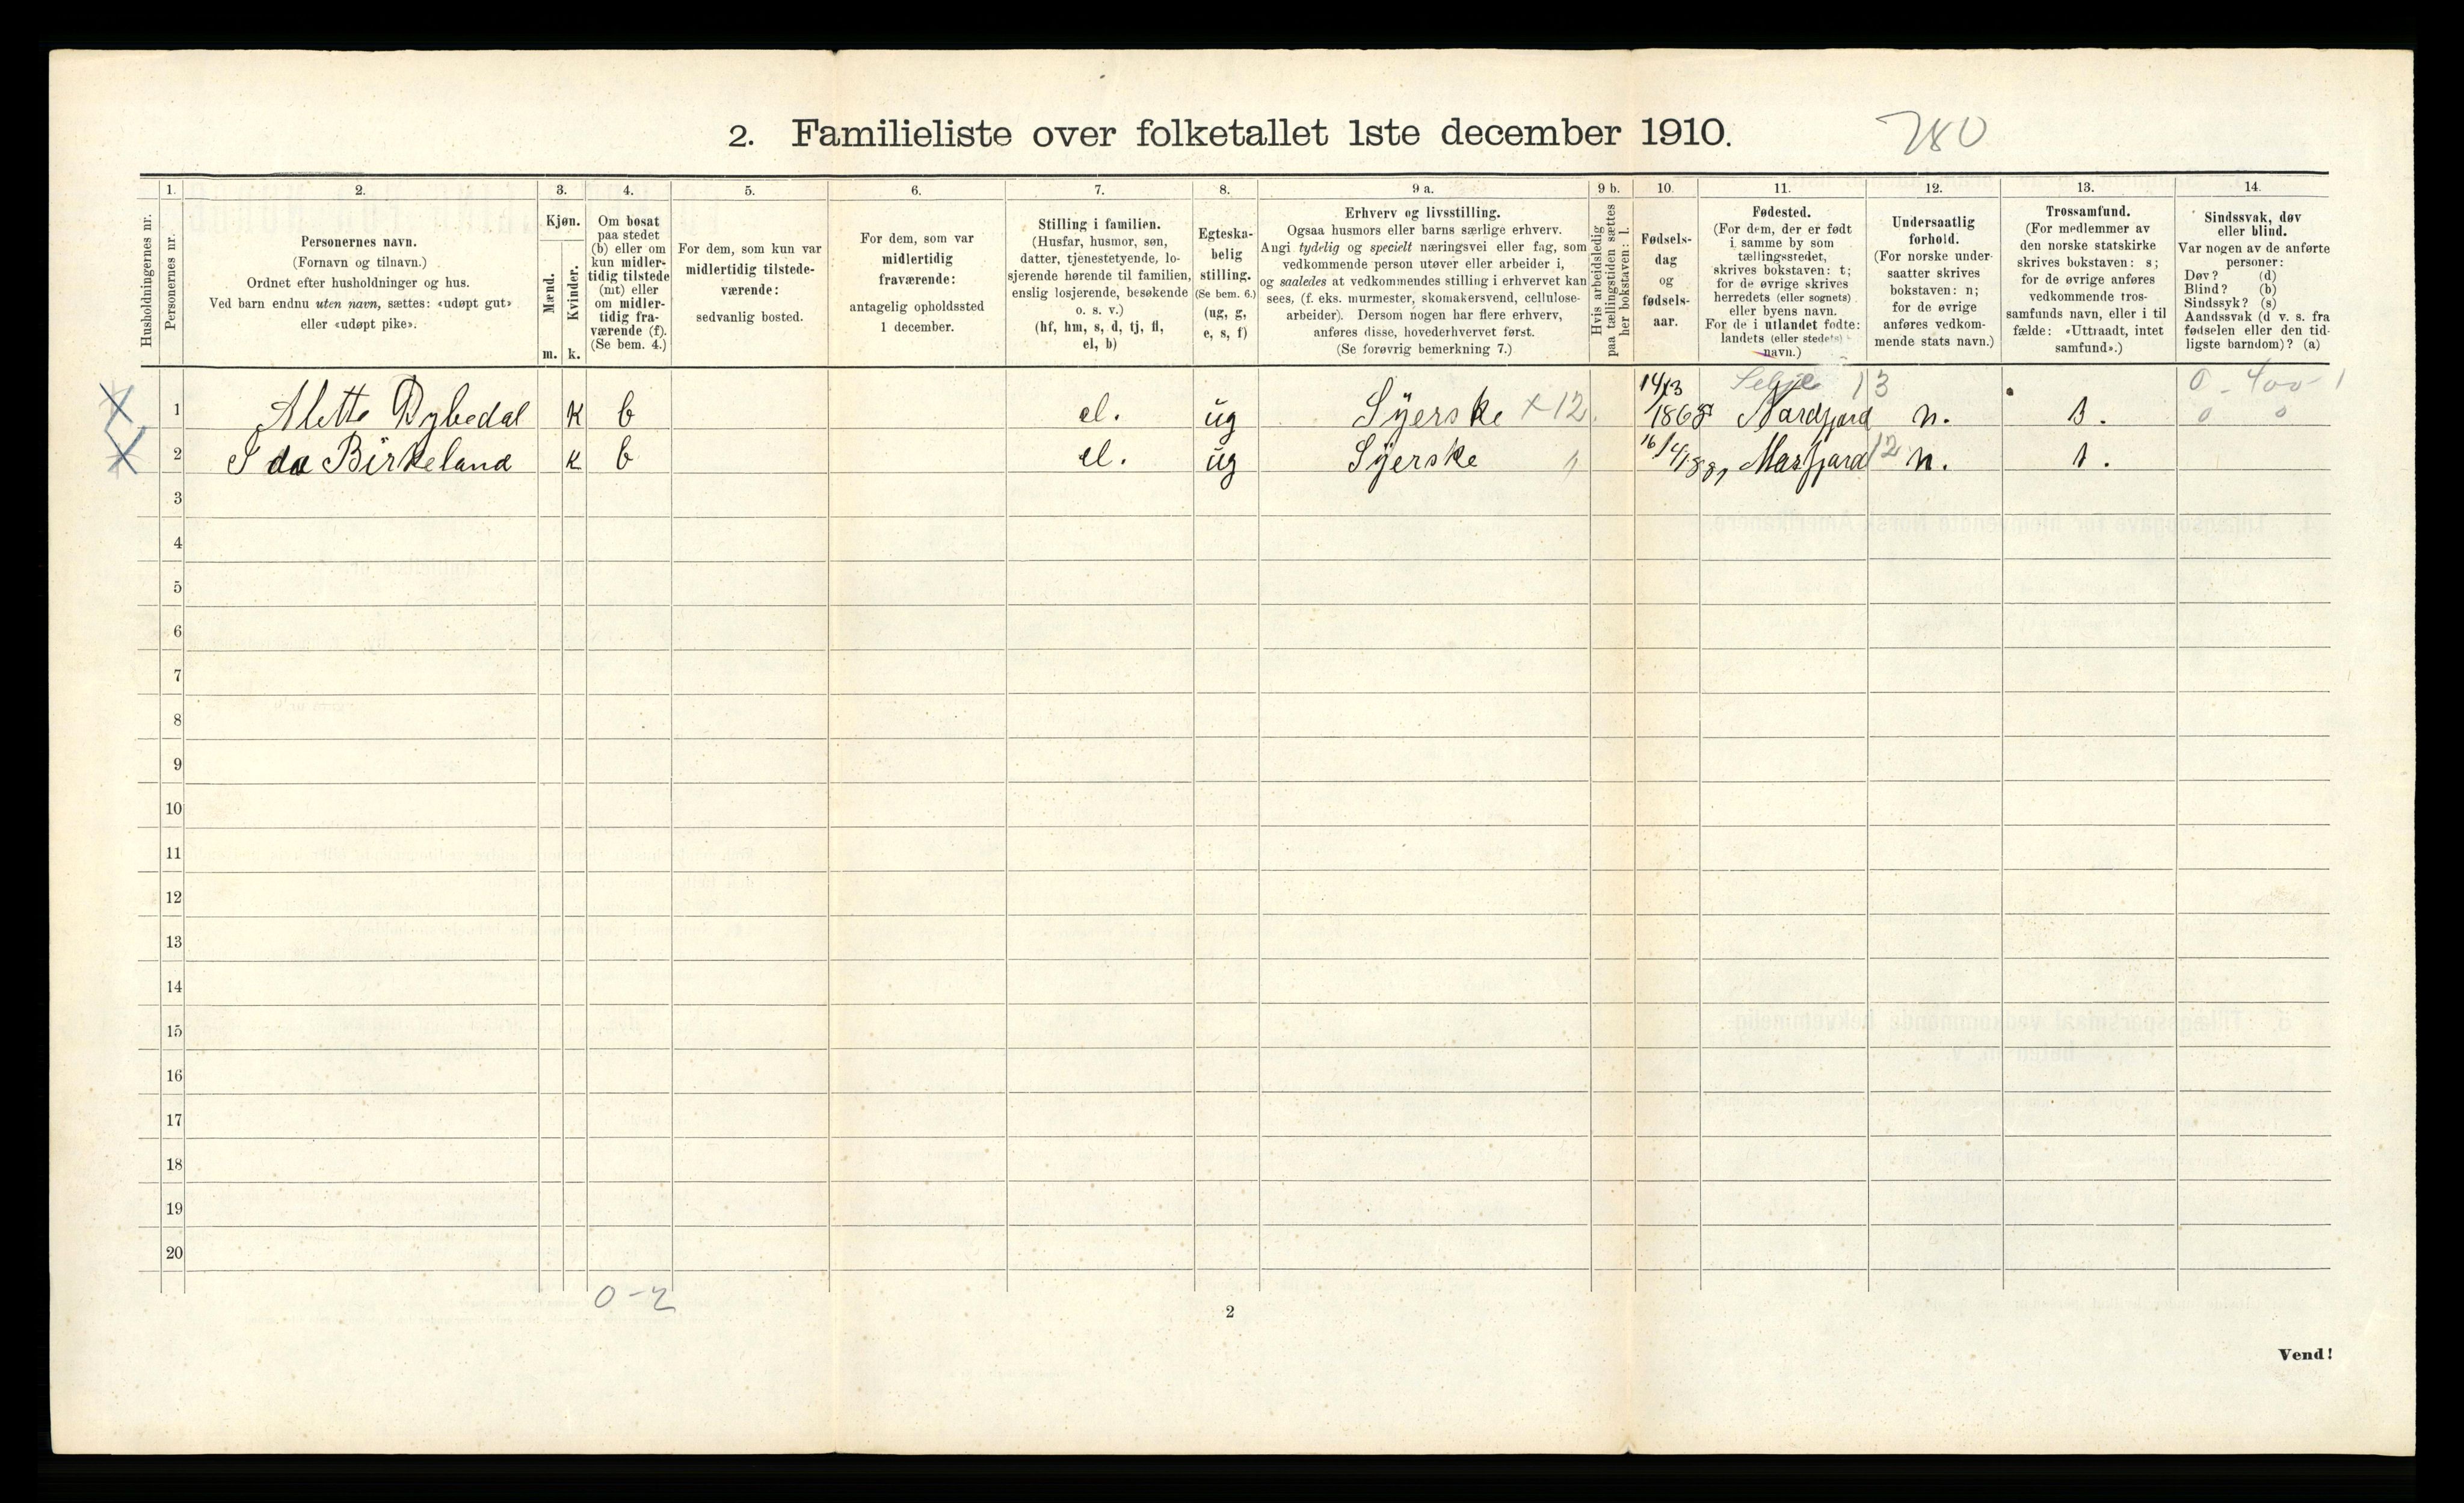 2. Familieliste over folketallet 1ste december 1910.
780
Husholdningernes nr.
1.
Personernes nr.
2.
Personernes navn.
(Fornavn og tilnavn.)
Ordnet efter husholdninger og hus.
Ved barn endnu uten navn, sættes: «udøpt gut»
eller «udøpt pike».
3.
Kjøn.
Mænd.
Kvinder.
m. k.
4.
Om bosat
paa stedet
(b) eller om
kun midler-
tidig tilstede
(mt) eller
om midler-
tidig fra-
værende (f).
(Se bem. 4.)
5.
For dem, som kun var
midlertidig tilstede-
værende:
sedvanlig bosted.
6.
For dem, som var
midlertidig
fraværende:
antagelig opholdssted
1 december.
7.
Stilling i familien.
(Husfar, husmor, søn,
datter, tjenestetyende, lo-
sjerende hørende til familien,
enslig losjerende, besøkende
o. s. v.)
(hf, hm, s, d, tj, fl,
el, b)
8.
Egteska-
belig
stilling.
(Se bem. 6.)
(ug, g,
e, s, f)
9 a.
Erhverv og livsstilling.
Ogsaa husmors eller barns særlige erhverv.
Angi tydelig og specielt næringsvei eller fag, som
vedkommende person utøver eller arbeider i,
og saaledes at vedkommendes stilling i erhvervet kan
sees, (f. eks. murmester, skomakersvend, cellulose-
arbeider). Dersom nogen har flere erhverv,
anføres disse, hovederhvervet først.
(Se forøvrig bemerkning 7.)
9 b.
Hvis arbeidsledig
paa tællingstiden sættes
her bokstaven: l.
10.
Fødsels-
dag
og
fødsels-
aar.
11.
Fødested.
(For dem, der er født
i samme by som
tællingsstedet,
skrives bokstaven: t;
for de øvrige skrives
herredets (eller sognets)
eller byens navn.
For de i utlandet fødte:
landets (eller stedets)
navn.)
12.
Undersaatlig
forhold.
(For norske under-
saatter skrives
bokstaven: n;
for de øvrige
anføres vedkom-
mende stats navn.)
13.
Trossamfund.
(For medlemmer av
den norske statskirke
skrives bokstaven: s;
for de øvrige anføres
vedkommende tros-
samfunds navn, eller i til
fælde: «Uttraadt, intet
samfund».)
14.
Sindssvak, døv
eller blind.
Var nogen av de anførte
personer:
Døv? (d)
Blind? (b)
Sindssyk? (s)
Aandssvak (d v. s. fra
fødselen eller den tid-
ligste barndom)? (a)
Selje 13 0 - 400 1
1 Alette Rybedal K b el. ug Syerske x 12. 14/3 1868 Nordfjord n. s. 0 0
2 Ida Birkeland K b el. ug Syerske 16/4 1887 Masfjord 12 n. s.
3
4
5
6
7
8
9
10
11
12
13
14
15
16
17
18
19
20
0-2
2
Vend!